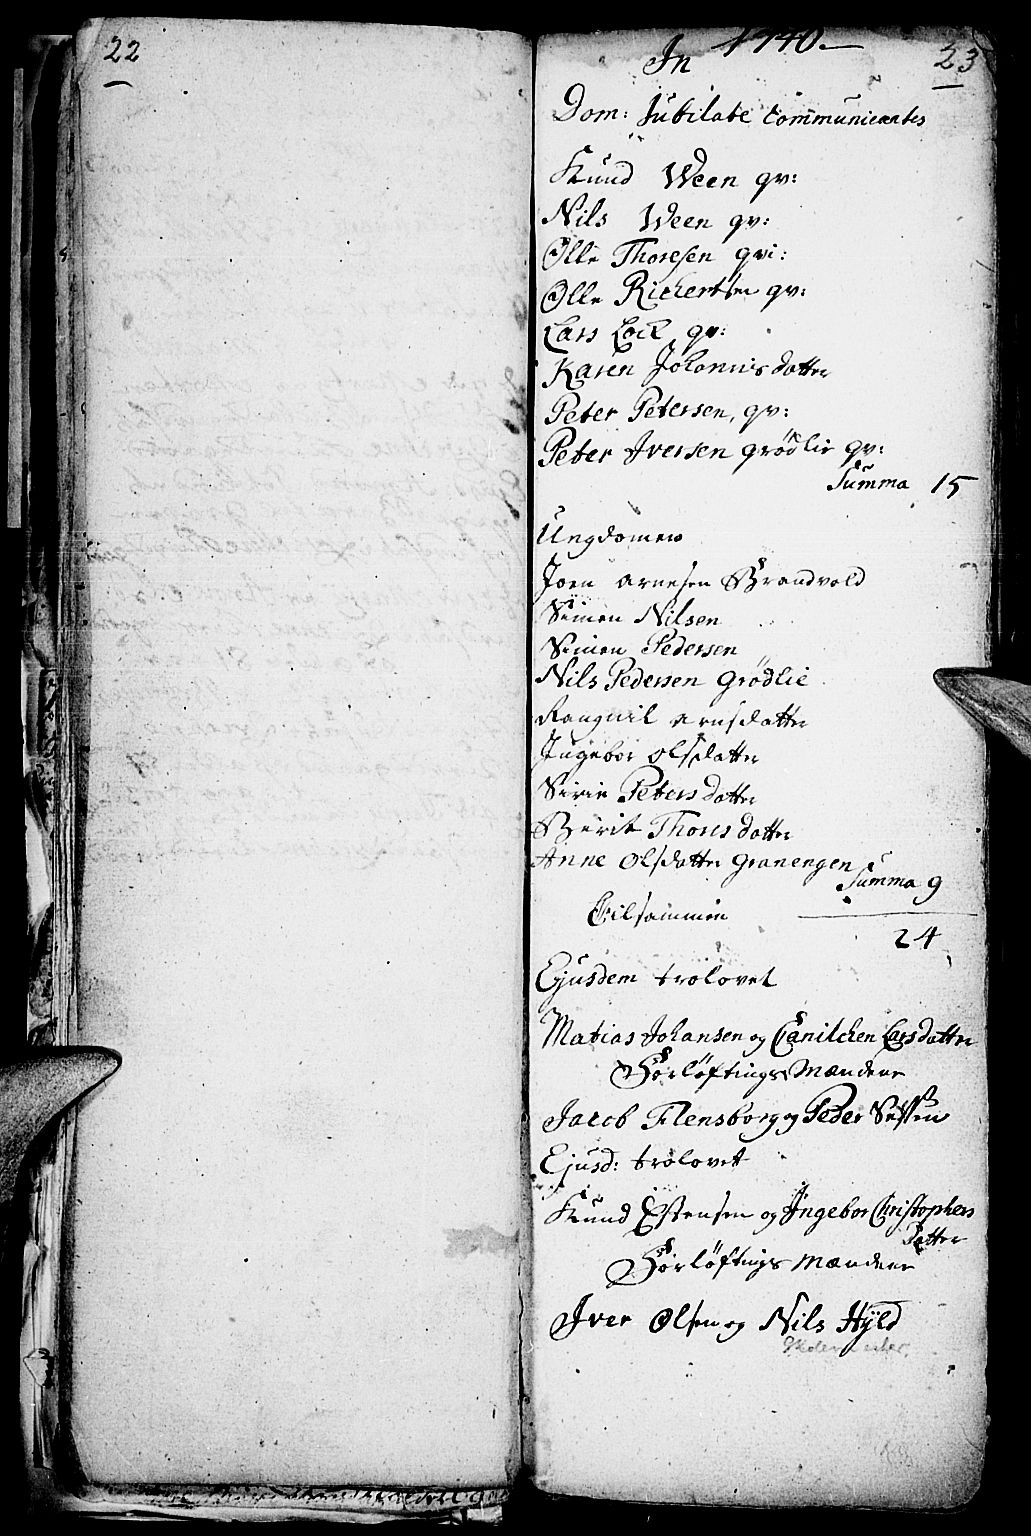 22
1740.
23
In
Dom: Jubilate Communicantes
Knud Ween qv:
Nils Ween qv:
Olle Thoresen qvi:
Olle Richertsen qv:
Lars Lock qv:
Karen Johannisdatter
Peter Petersen, qv:
Peter Iversen grödlie qv:
Summa 15
Ungdomen
Joen arnesen Brandvold
Simen Nilsen
Simen Pedersen
Nils Pedersen Grödlie
Rangnil arnsdatter
Ingebor olsdatter
Sirie Petersdatter
Berit Thorisdatter
Anne olsdatter granengen
Summa 9
Tilsammen
24
Ejusdem trolovet
Matias Johansen og Larsdatter
Forlöftings Mændene
Jacob Flensborg og Peder
Ejusd: trolovet
Knud Estensen og Ingebor Christophers
Datter
Forlöftings Mændene
Iver Olsen og Nils Hyld